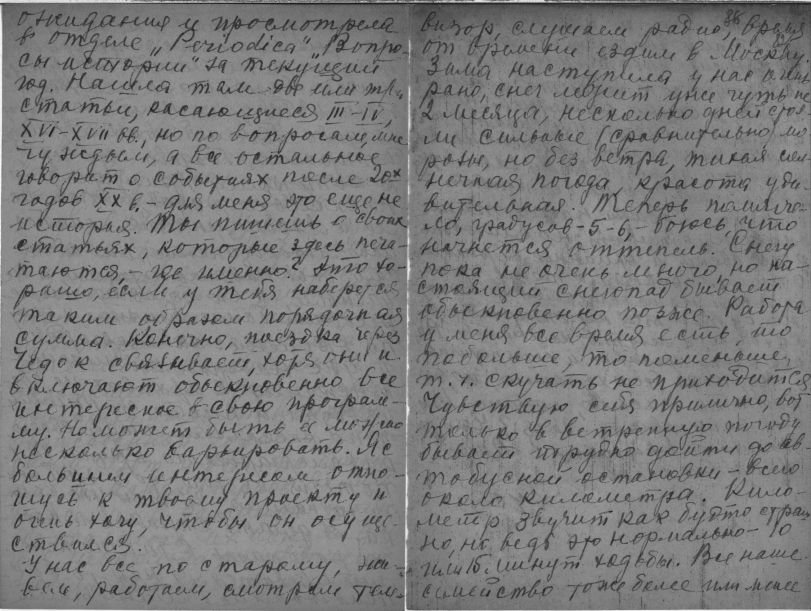 ожидания и просмотрела
в отделе „Periodica“ „Вопро-
сы истории“ за текущий
год. Нашла там две или три
статьи, касающиеся III–IV,
XVI–XVII вв., но по вопросам, мне
чуждым, а все остальное
говорят о событиях после 20х
годов XX в. – для меня это еще не
история. Ты пишешь о своих
статьях, которые здесь печа-
таются, – где именно? Это хо-
рошо, если у тебя наберется
таким образом порядочная
сумма. Конечно, поездка через
Чедок связывает, хотя они и
включают обыкновенно все
интересное в свою програм-
му. Но может быть и можно
несколько варьировать. Я с
большим интересом отно-
шусь к твоему проекту и
очень хочу, чтобы он осуще-
ствился.
У нас все по старому, жи-
вем, работаем, смотрим теле-
36
визор, слушаем радио, время
от времени ездим в Москву.
Зима наступила у нас очень
рано, снег лежит уже чуть не
2 месяца, несколько дней стоя-
ли сильные (сравнительно) мо-
розы, но без ветра, тихая сол-
нечная погода, красота уди-
вительная. Теперь помягча-
ло, градусов -5-6, – боюсь, что
начнется оттепель. Снегу
пока не очень много, но на-
стоящий снегопад бывает
обыкновенно позже. Работа
у меня все время есть, то
побольше, то поменьше,
т.ч. скучать не приходится.
Чувствую себя прилично, вот
только в ветренную погоду
бывает трудно дойти до ав-
тобусной остановки – всего
около километра. Кило-
метр звучит как будто страш
но, но ведь это нормально – 10
или 15 минут ходьбы. Все наше
семейство тоже более или менее